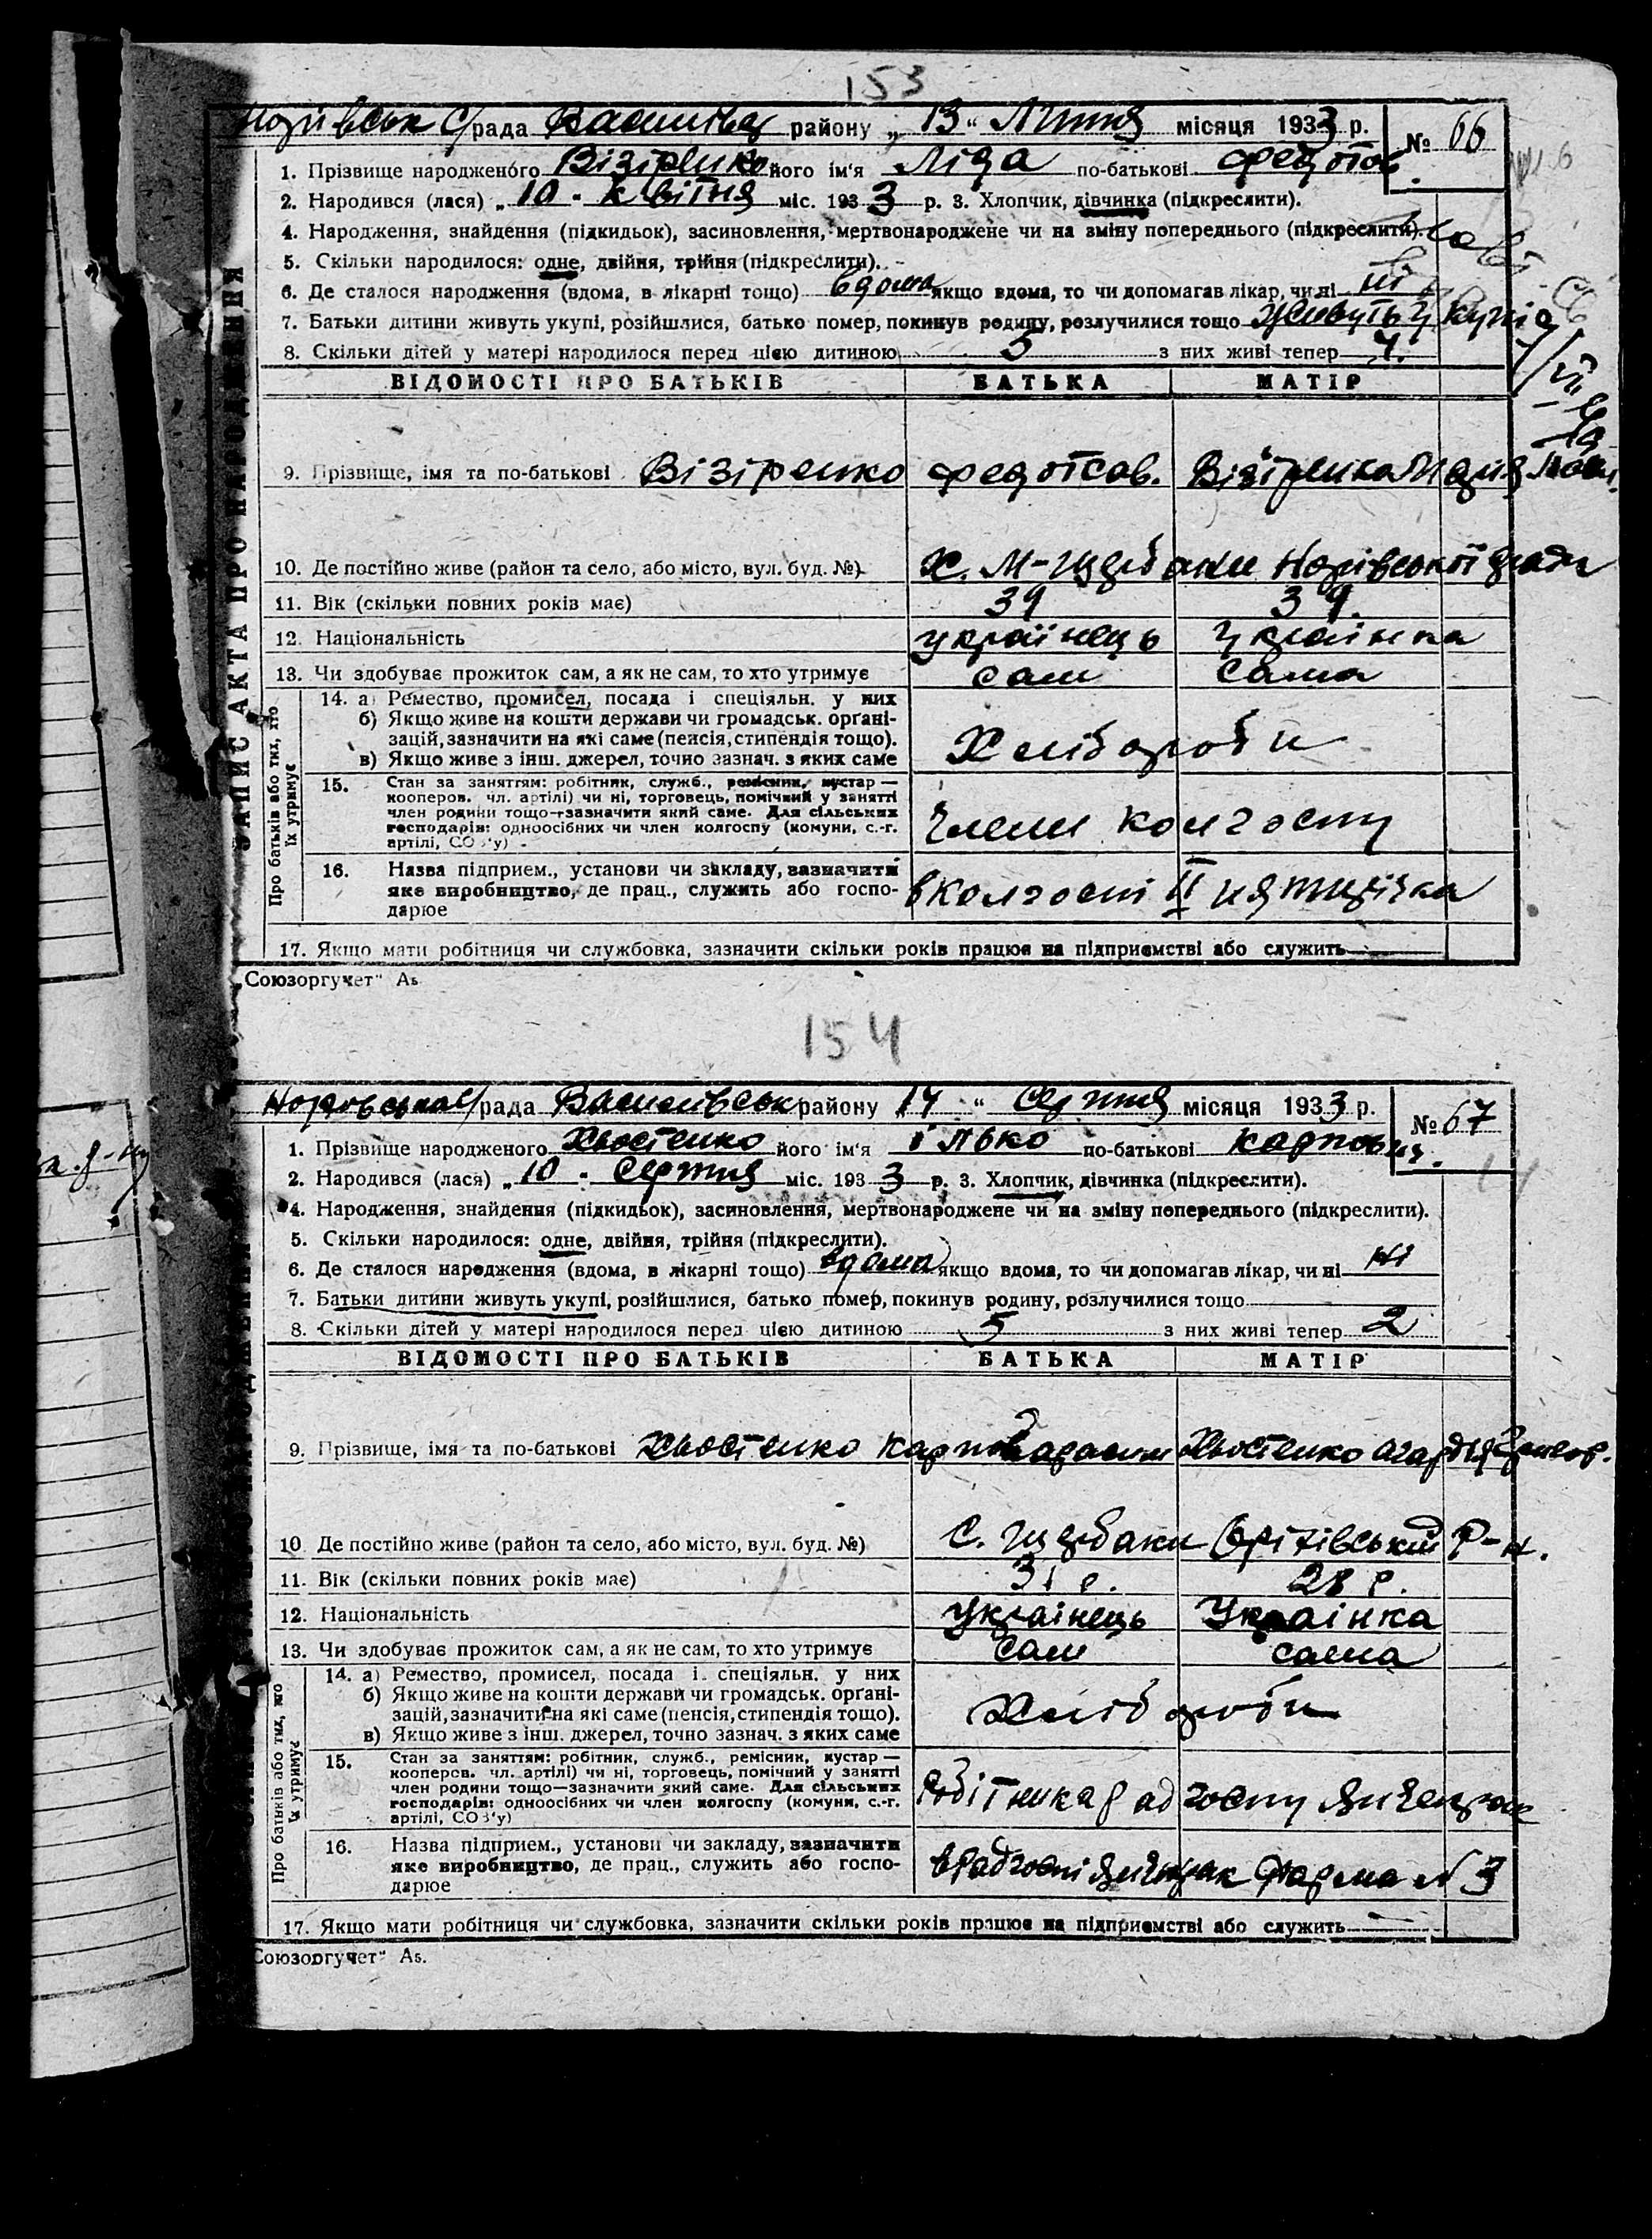 153
с/рада Василівськ району „13“ Липня місяця 1933 р. № 66
ЗАПИС АКТА ПРО НАРОДЖЕННЯ
1. Прізвище народженого Візіренко його ім'я Ліда по-батькові Федотов.
2. Народився (лася) „10 - Квітня міс. 1933 р. 3. Хлопчик, дівчинка (підкреслити).
4. Народження, знайдення (підкидьок), засиновлення, мертвонароджене чи на зміну попереднього (підкреслити).
5. Скільки народилося: одне, двійня, трійня (підкреслити).
6. Де сталося народження (вдома, в лікарні тощо) вдома якщо вдома, то чи допомагав лікар, чи ні ні
7. Батьки дитини живуть укупі, розійшлися, батько помер, покинув родину, розлучилися тощо живуть у купі
8. Скільки дітей у матері народилося перед цією дитиною 5 з них живі тепер 4.
ВІДОМОСТІ ПРО БАТЬКІВ БАТЬКА МАТІР
9. Прізвище, імя та по-батькові Візіренко Федот Сав. Візіренко
10. Де постійно живе (район та село, або місто, вул. буд. №) Х. М-Щербаки ради
11. Вік (скільки повних років має) 39 39.
12. Національність українець українка
13. Чи здобуває прожиток сам, а як не сам, то хто утримує сам сама
Про батьків або тих, хто їх утримує
14. а) Ремество, промисел, посада і спеціяльн. у них
б) Якщо живе на кошти держави чи громадськ. орґані-
зацій, зазначити на які саме (пенсія, стипендія тощо).
в) Якщо живе з інш. джерел, точно зазнач. з яких саме
Хлібороби
15. Стан за заняттям: робітник, служб., ремісник, кустар —
кооперов. чл. артілі) чи ні, торговець, помічний у занятті
член родини тощо—зазначити який саме. Для сільських
господарів: одноосібних чи член колгоспу (комуни, с.-г.
артілі, СОЗ'у)
Члени колгоспу
16. Назва підприєм., установи чи закладу, зазначити
яке виробництво, де прац., служить або госпо-
дарює
в колгоспі II пятирічка
17. Якщо мати робітниця чи службовка, зазначити скільки років працює на підприємстві або служить
Союзоргучет"
154
с/рада Василівськ району „14“ Серпня місяця 1933 р. № 67
1. Прізвище народженого Хвостенко його ім'я Ілько по-батькові Карпович.
2. Народився (лася) „10 - Серпня міс. 1933 р. 3. Хлопчик, дівчинка (підкреслити).
4. Народження, знайдення (підкидьок), засиновлення, мертвонароджене чи на зміну попереднього (підкреслити).
5. Скільки народилося: одне, двійня, трійня (підкреслити).
6. Де сталося народження (вдома, в лікарні тощо) вдома якщо вдома, то чи допомагав лікар, чи ні ні
7. Батьки дитини живуть укупі, розійшлися, батько помер, покинув родину, розлучилися тощо
8. Скільки дітей у матері народилося перед цією дитиною 5 з них живі тепер 2
ВІДОМОСТІ ПРО БАТЬКІВ БАТЬКА МАТІР
9. Прізвище, імя та по-батькові Хвостенко Карпо Хвостенко
10. Де постійно живе (район та село, або місто, вул. буд. №) С. Щербаки Оріхівський Р-н.
11. Вік (скільки повних років має) 31 р. 28 р.
12. Національність українець Українка
13. Чи здобуває прожиток сам, а як не сам, то хто утримує сам сама
Про батьків або тих, хто їх утримує
14. а) Ремество, промисел, посада і спеціяльн. у них
б) Якщо живе на кошти держави чи громадськ. орґані-
зацій, зазначити на які саме (пенсія, стипендія тощо).
в) Якщо живе з інш. джерел, точно зазнач. з яких саме
Хлібороби
15. Стан за заняттям: робітник, служб., ремісник, кустар —
кооперов. чл. артілі) чи ні, торговець, помічний у занятті
член родини тощо—зазначити який саме. Для сільських
господарів: одноосібних чи член колгоспу (комуни, с.-г.
артілі, СОЗ'у)
Робітника радгоспу
16. Назва підприєм., установи чи закладу, зазначити
яке виробництво, де прац., служить або госпо-
дарює
в радгоспі Ферма № 3
17. Якщо мати робітниця чи службовка, зазначити скільки років працює на підприємстві або служить
Союзоргучет"